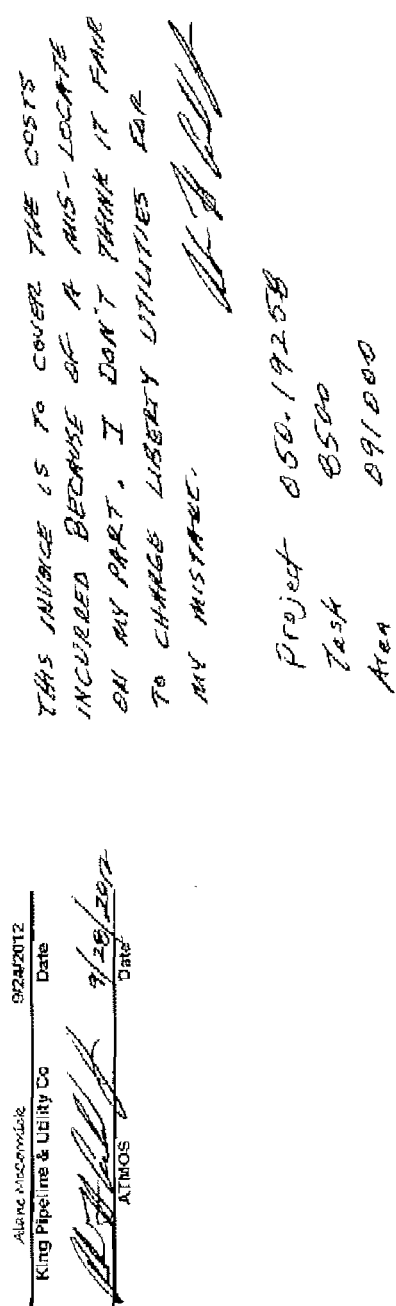 Alane McCormick 9/24/2012
King Pipeline & Utility Co Date
9/28/2012
ATMOS Date
THIS INVOICE IS TO COVER THE COSTS
INCURRED BECAUSE OF A MIS-LOCATE
ON MY PART. I DON'T THINK IT FAIR
TO CHARGE LIBERTY UTILITIES FOR
MY MISTAKE.
Project 050.19258
Task 8500
Area 091000